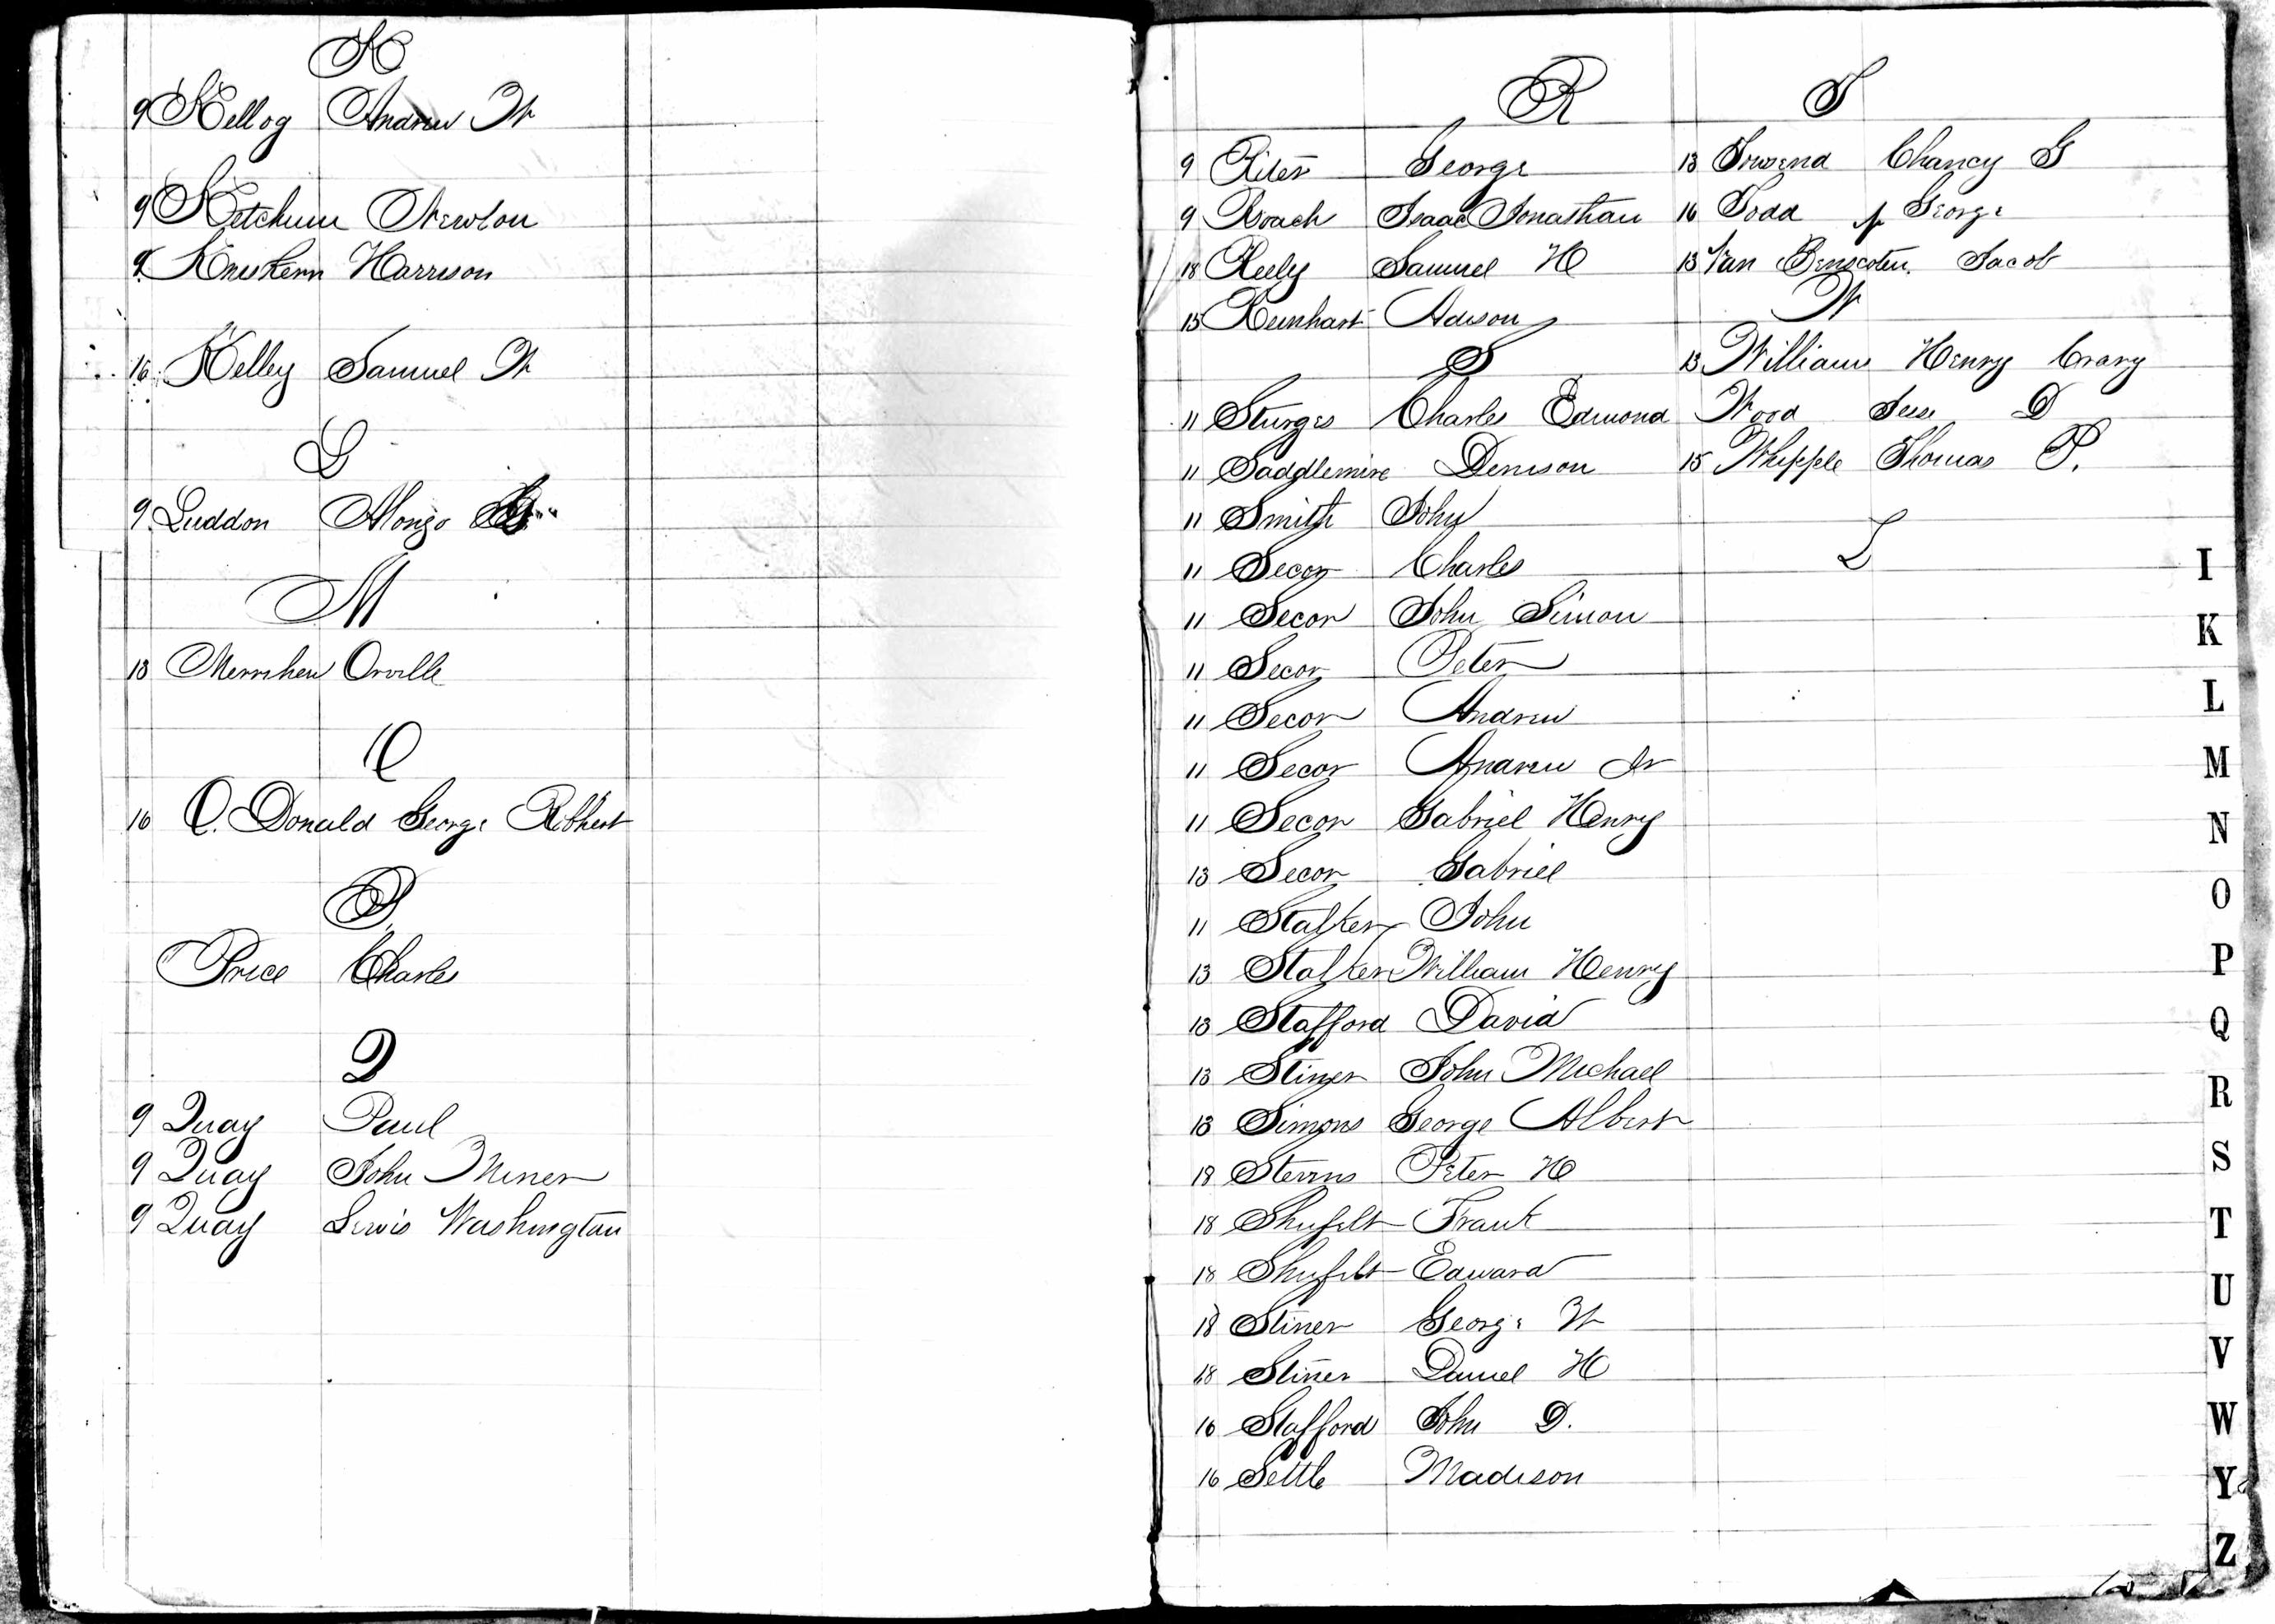 K
9 Kellog Andrew W
9 Ketchum Newton
9 Kniskern Harrison
16 Kelley Samuel W
L
9 Luddon Alonzo
M
13 Merrihew Orville
O
16 O. Donald George Robhert
P
Price Charles
Q
9 Quay Paul
9 Quay John Miner
9 Quay Lewis Washington
R
9 Riter George
9 Roach Isaac Jonathan
18 Reely Samuel H
15 Reinhart Adison
S
11 Sturges Charles Edmond
11 Saddlemire Denison
11 Smith John
11 Secor Charles
11 Secor John Simon
11 Secor Peter
11 Secor Andrew
11 Secor Andrew Jr
11 Secor Gabriel Henry
13 Secor Gabriel
11 Stalker John
13 Stalker William Henry
13 Stafford David
13 Stiner John Michael
13 Simons George Albert
18 Sterns Peter H
18 Shufelt Frank
18 Shufelt Edward
18 Stiner George W
18 Stiner Daniel H
16 Stafford John D.
16 Settle Madison
T
13 Towsend Chancy G
16 Todd George
13 Van Benscoten Jacob
W
13 William Henry Crary
Wood Jess D
15 Whipple Thomas P.
I
K
L
M
N
O
P
Q
R
S
T
U
V
W
Y
Z